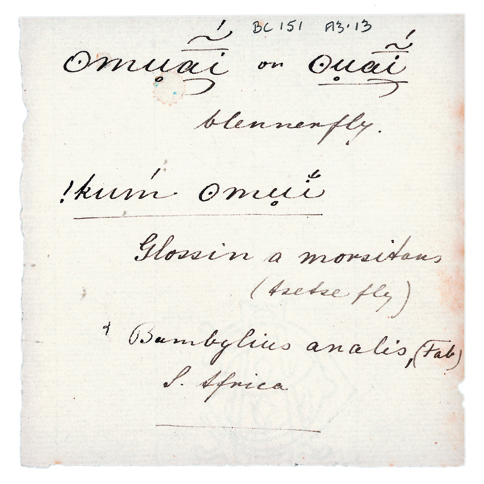 BC 151 A3.13
Omu̱ãí or O̱u̱ãí
blennerfly.
!kuḿ Omu̱i
Glossina morsitans
(tsetse fly)
Bombylius analis, (Fab)
S. Africa